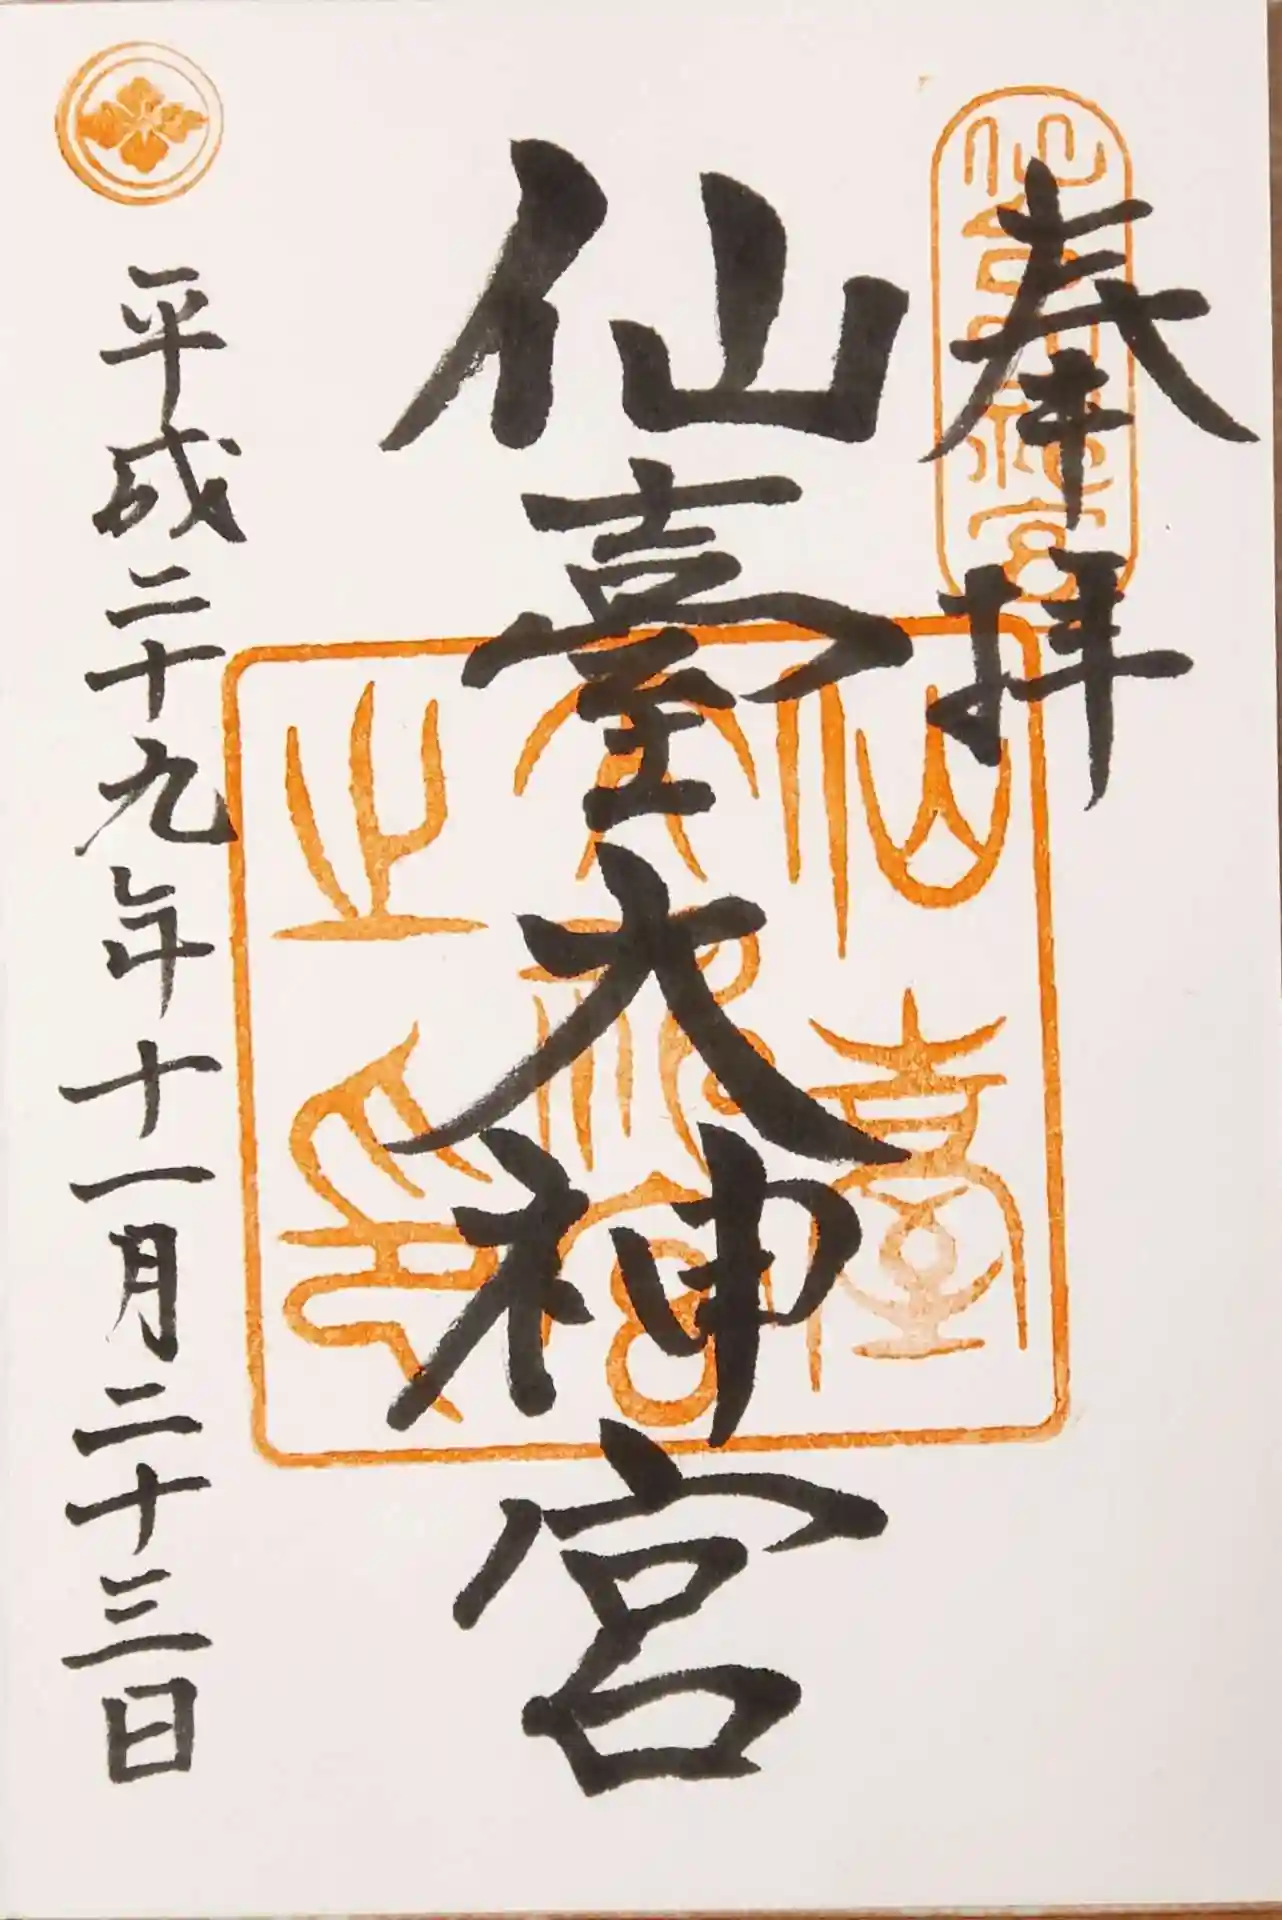 奉拝
仙臺大神宮
仙臺大神宮
仙臺
大神宮
之印
平成二十九年十一月二十三日